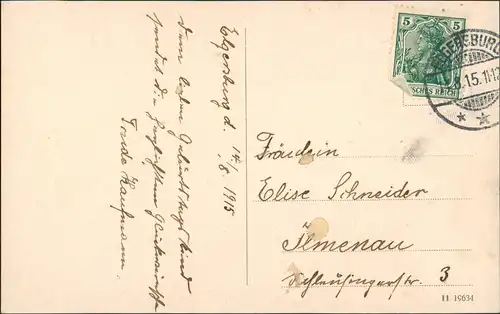 Elgersburg d. 14/8. 1915
Dem lieben Geburtstagskind
sendet die herzlichsten Glückwünsche
Trude Kaufmann.
5 5
SCHES REICH
ELGERSBURG
.15.11-12
Fräulein
Elise Schneider
Ilmenau
Schleusingerstr. 3
11 19634